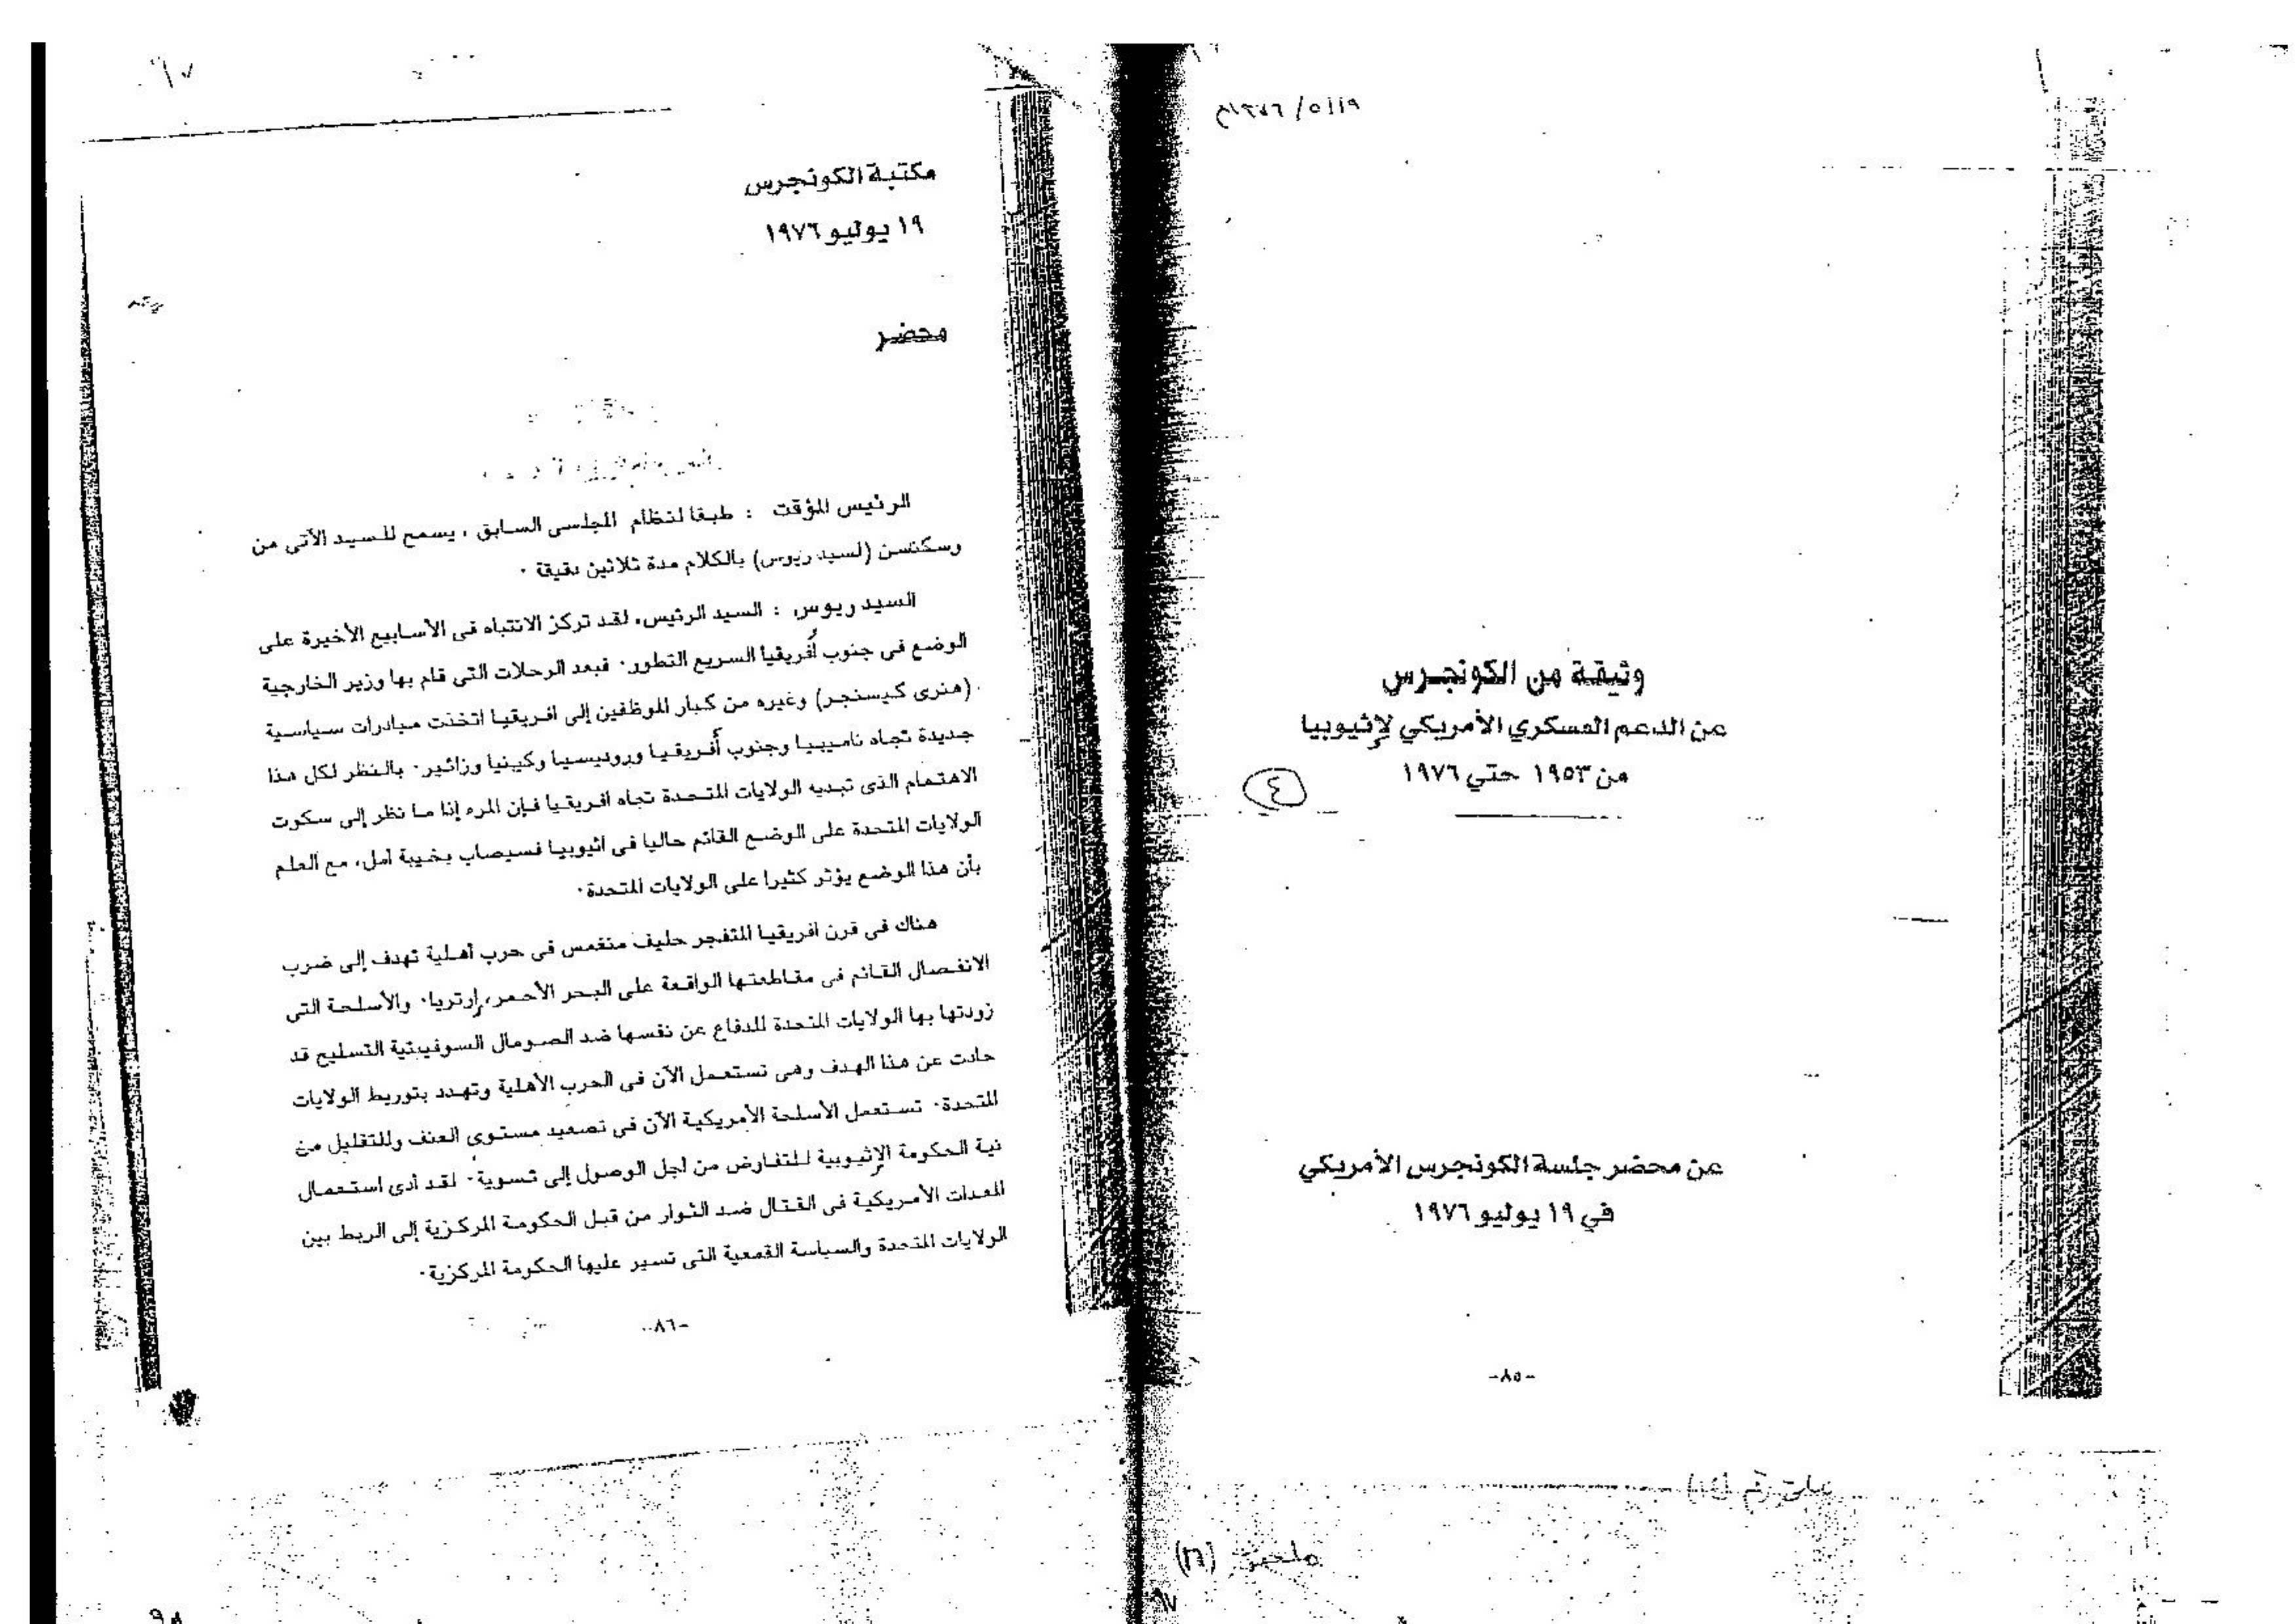 وثيقة من الكونجرس
عن الدعم العسكري الأمريكي لإثيوبيا
من ١٩٥٣ حتي ١٩٧٦
٤
عن محضر جلسة الكونجرس الأمريكي
في ١٩ يوليو ١٩٧٦
-٨٥-
ملحق
مكتبة الكونجرس
١٩ يوليو ١٩٧٦
محضر
الرئيس المؤقت : طبقا لنظام المجلسى السابق ، يسمح للسيد الآتى من
وسكنسن (لسيد ريوس) بالكلام مدة ثلاثين دقيقة ٠
السيد ريوس : السيد الرئيس، لقد تركز الانتباه فى الأسابيع الأخيرة على
الوضع فى جنوب أفريقيا السريع التطور٠ فبعد الرحلات التى قام بها وزير الخارجية
(هنرى كيسنجر) وغيره من كبار الموظفين إلى افريقيا اتخذت مبادرات سياسية
جديدة تجاه ناميبيا وجنوب أفريقيا وروديسيا وكينيا وزائير٠ بالنظر لكل هذا
الاهتمام الذى تبديه الولايات المتحدة تجاه افريقيا فإن المرء إذا ما نظر إلى سكوت
الولايات المتحدة على الوضع القائم حاليا فى اثيوبيا فسيصاب بخيبة أمل، مع العلم
بأن هذا الوضع يؤثر كثيرا على الولايات المتحدة٠
هناك فى قرن افريقيا المتفجر حليف منغمس فى حرب أهلية تهدف إلى ضرب
الانفصال القائم فى مقاطعتها الواقعة على البحر الأحمر، إرتريا٠ والأسلحة التى
زودتها بها الولايات المتحدة للدفاع عن نفسها ضد الصومال السوفييتية التسليح قد
حادت عن هذا الهدف وهى تستعمل الآن فى الحرب الأهلية وتهدد بتوريط الولايات
المتحدة٠ تستعمل الأسلحة الأمريكية الآن فى تصعيد مستوى العنف وللتقليل من
نية الحكومة الإثيوبية للتفارض من أجل الوصول إلى تسوية٠ لقد أدى استعمال
المعدات الأمريكية فى القتال ضد الثوار من قبل الحكومة المركزية إلى الربط بين
الولايات المتحدة والسياسة القمعية التى تسير عليها الحكومة المركزية٠
-٨٦-